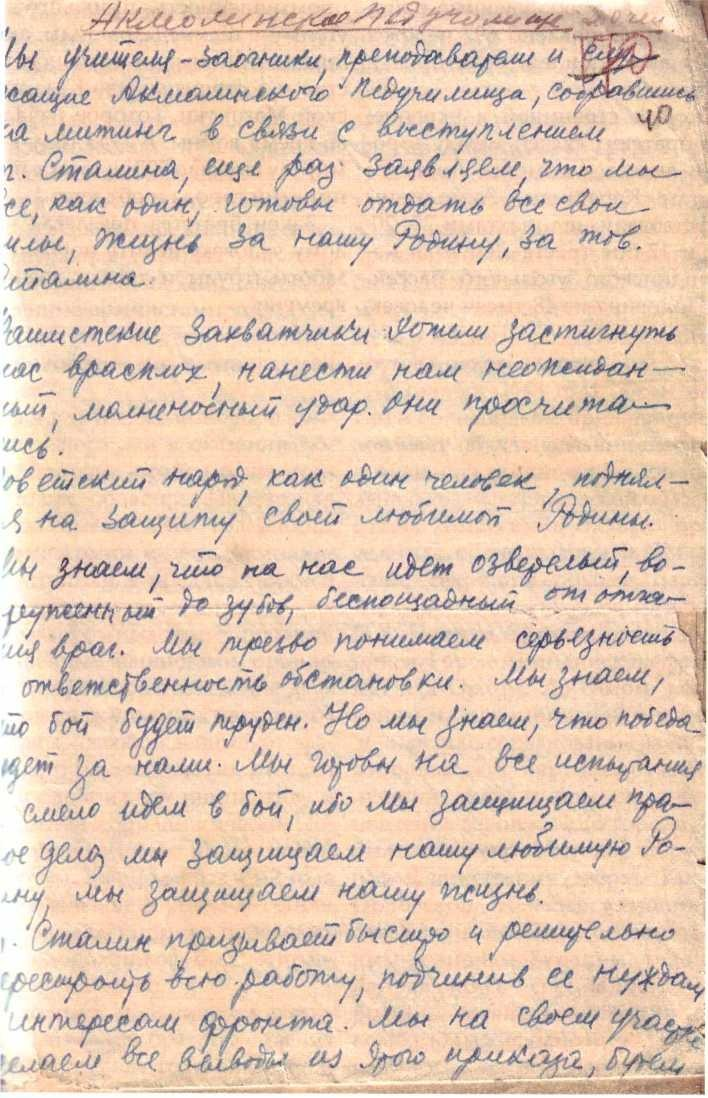 Акмолинское Педучилище
Мы учителя-заочники, преподаватели и слу-
жащие Акмолинского Педучилища, собравшись
на митинг в связи с выступлением
т. Сталина, еще раз заявляем, что мы
все, как один, готовы отдать все свои
силы, жизнь за нашу Родину, за тов.
Сталина.
Фашистские захватчики хотели застигнуть
нас врасплох, нанести нам неожидан-
ный, молниеносный удар. Они просчита-
лись.
Советский народ, как один человек, поднял-
ся на защиту своей любимой Родины.
Мы знаем, что на нас идет озверелый, во-
оруженный до зубов, беспощадный от отча-
яния враг. Мы трезво понимаем серьезность
ответственность обстановки. Мы знаем,
что бой будет труден. Но мы знаем, что победа
будет за нами. Мы готовы на все испытания
смело идем в бой, ибо мы защищаем пра-
вое дело, мы защищаем нашу любимую Ро-
дину, мы защищаем нашу жизнь.
т. Сталин призывает быстро и решительно
перестроить всю работу, подчинив ее нуждам
интересам фронта. Мы на своем участке
делаем все выводы из этого приказа, будем